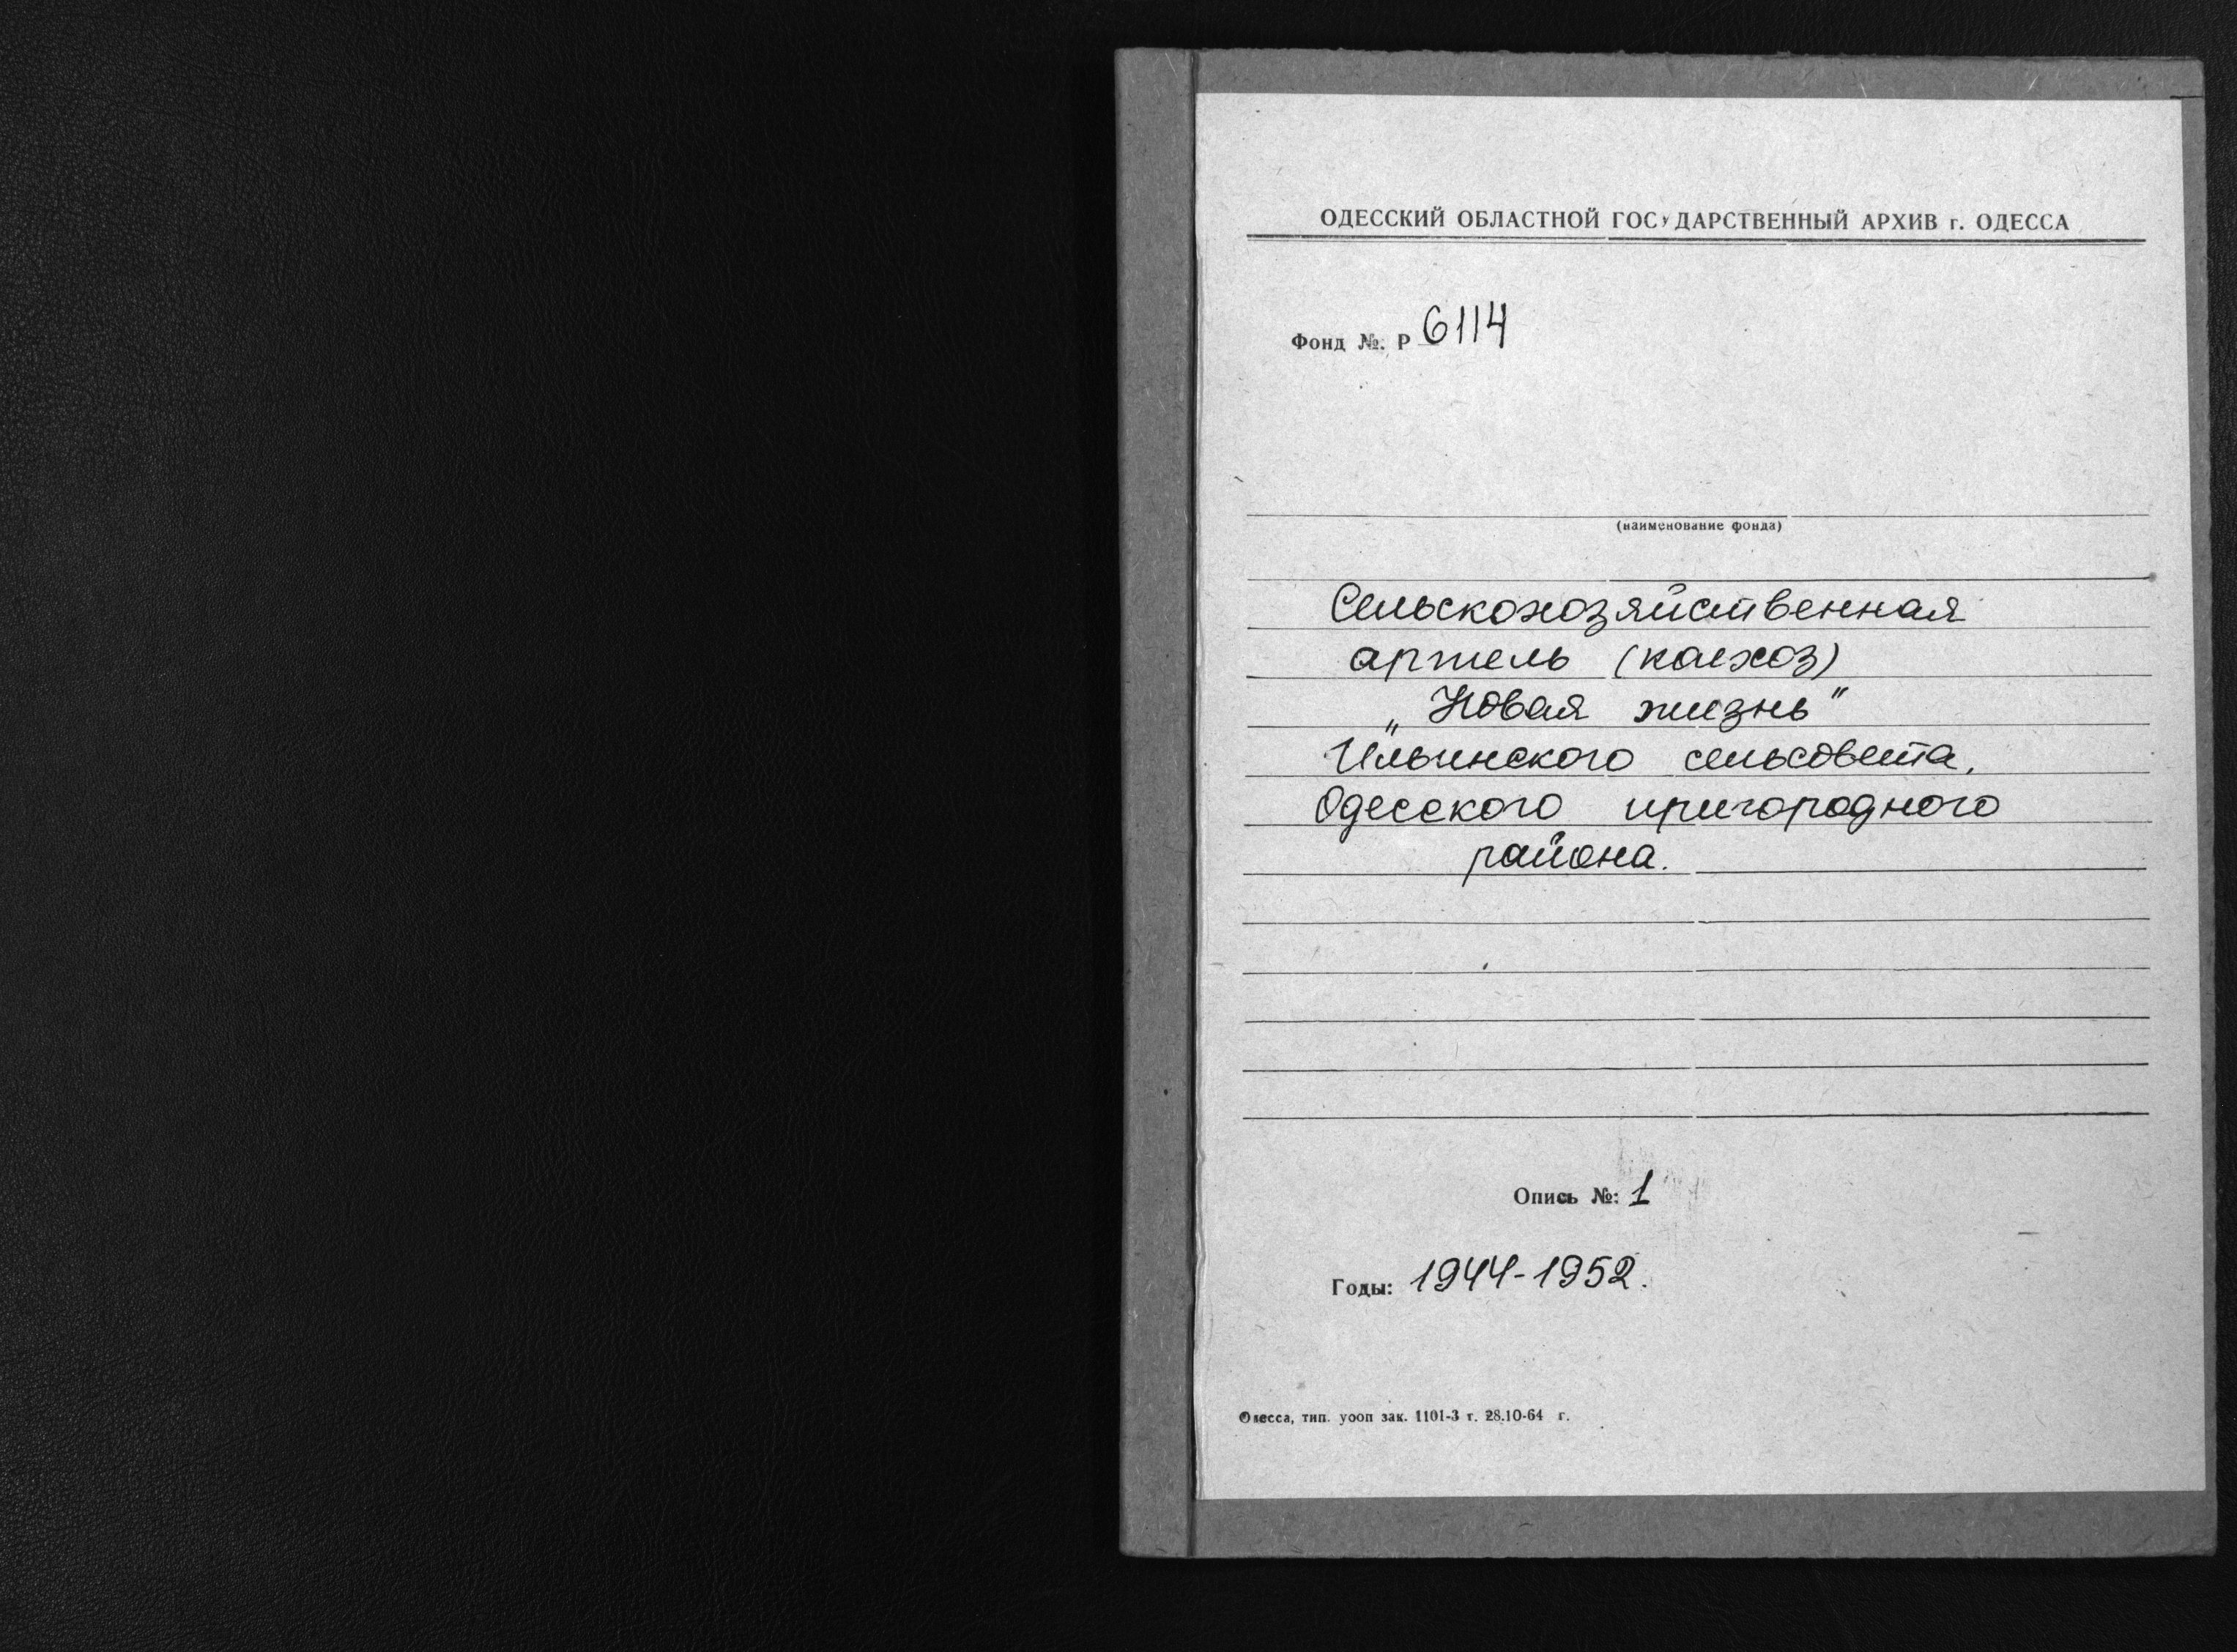 ОДЕССКИЙ ОБЛАСТНОЙ ГОСУДАРСТВЕННЫЙ АРХИВ г. ОДЕССА
Фонд №. Р 6114
(наименование фонда)
Сельскохозяйственная
артель (колхоз)
„Новая жизнь"
Ильинского сельсовета,
Одесского пригородного
района.
Опись №: 1
Годы: 1944-1952.
Одесса, тип. уооп зак. 1101-3 т. 28.10-64 г.